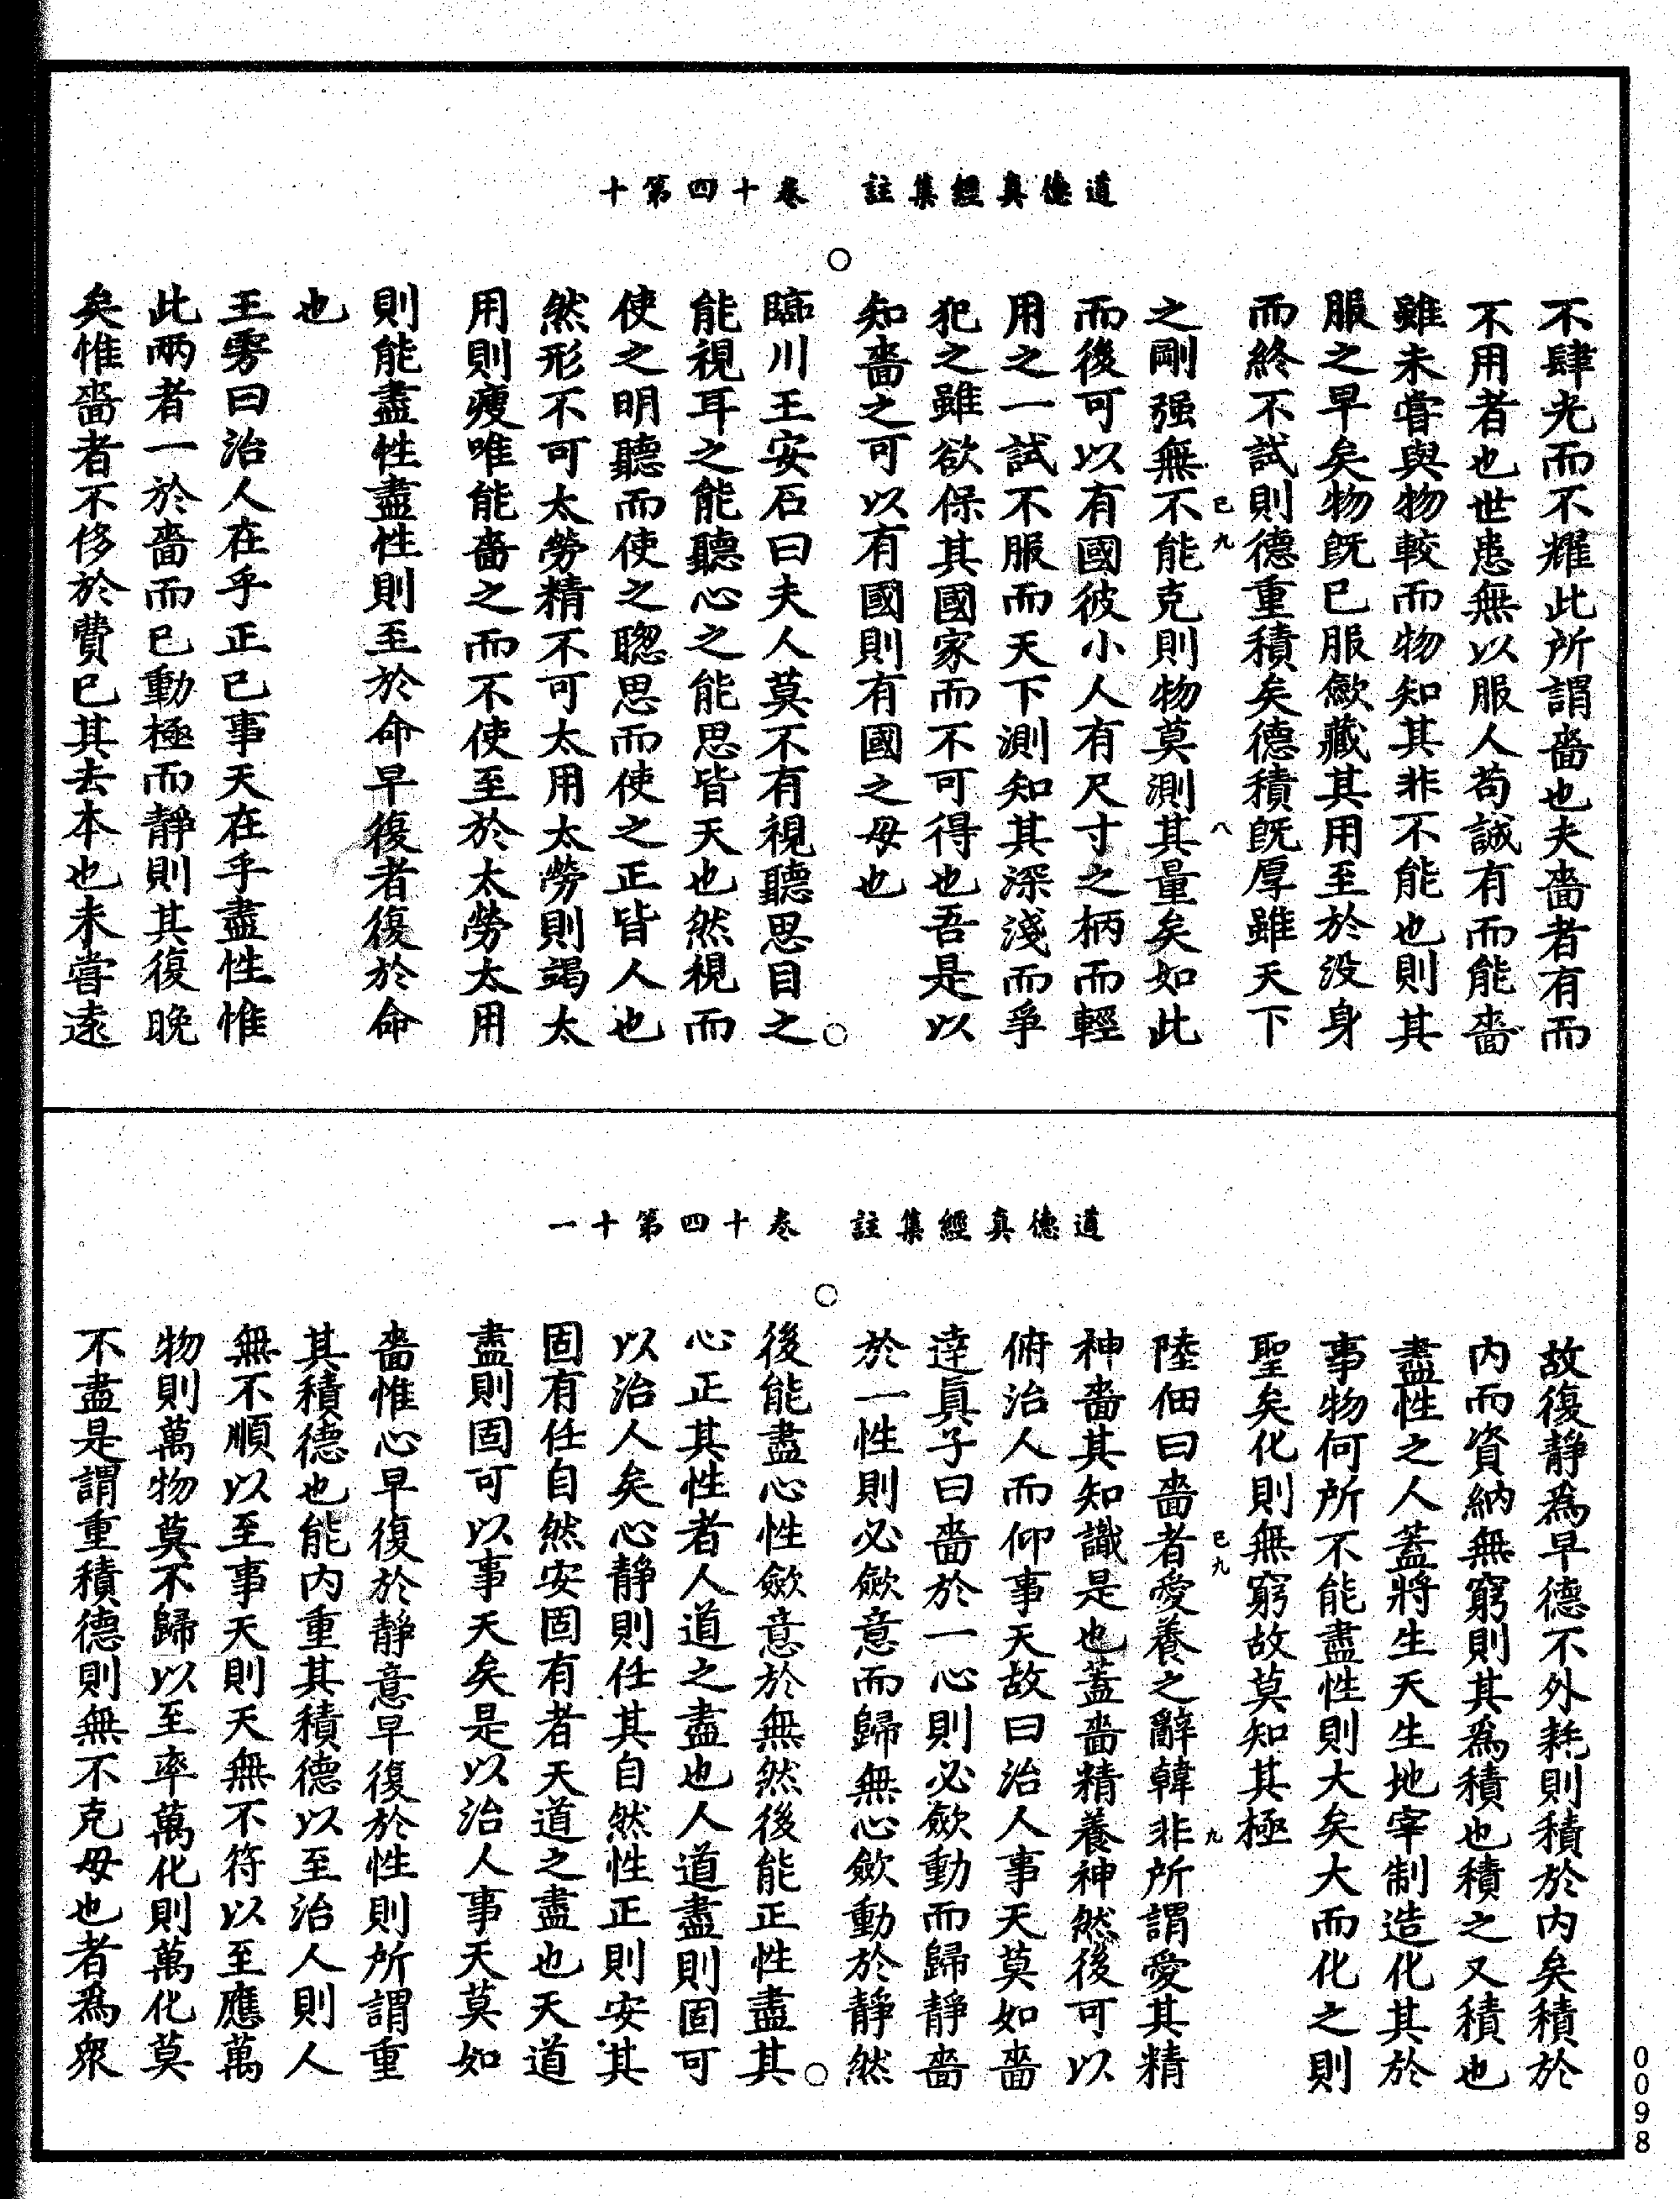 道德真經集註　卷十四第十
不肆光而不耀此所謂嗇也夫嗇者有而
不用者也世患無以服人苟誠有而能嗇
雖未嘗與物較而物知其非不能也則其
服之早矣物既已服歛藏其用至於没身
而終不試則德重積矣德積既厚雖天下
已九
八
之剛强無不能克則物莫測其量矣如此
而後可以有國彼小人有尺寸之柄而輕
用之一試不服而天下測知其深淺而爭
犯之雖欲保其國家而不可得也吾是以
知嗇之可以有國則有國之母也
臨川王安石曰夫人莫不有視聽思目之
能視耳之能聽心之能思皆天也然視而
使之明聽而使之聦思而使之正皆人也
然形不可太勞精不可太用太勞則竭太
用則瘦唯能嗇之而不使至於太勞太用
則能盡性盡性則至於命早復者復於命
也
王雱曰治人在乎正已事天在乎盡性惟
此兩者一於嗇而已動極而靜則其復晚
矣惟嗇者不侈於費已其去本也未嘗遠
道德真經集註　卷十四第十一
故復静爲早德不外耗則積於内矣積於
内而資納無窮則其爲積也積之又積也
盡性之人蓋將生天生地宰制造化其於
事物何所不能盡性則大矣大而化之則
聖矣化則無窮故莫知其極
已九
九
陸佃曰嗇者愛養之辭韓非所謂愛其精
神嗇其知識是也蓋嗇精養神然後可以
俯治人而仰事天故曰治人事天莫如嗇
達眞子曰嗇於一心則必歛動而歸靜嗇
於一性則必歛意而歸無心歛動於靜然
後能盡心性歛意於無然後能正性盡其
心正其性者人道之盡也人道盡則固可
以治人矣心静則任其自然性正則安其
固有任自然安固有者天道之盡也天道
盡則固可以事天矣是以治人事天莫如
嗇惟心早復於静意早復於性則所謂重
其積德也能内重其積德以至治人則人
無不順以至事天則天無不符以至應萬
物則萬物莫不歸以至率萬化則萬化莫
不盡是謂重積德則無不克母也者爲衆
0098